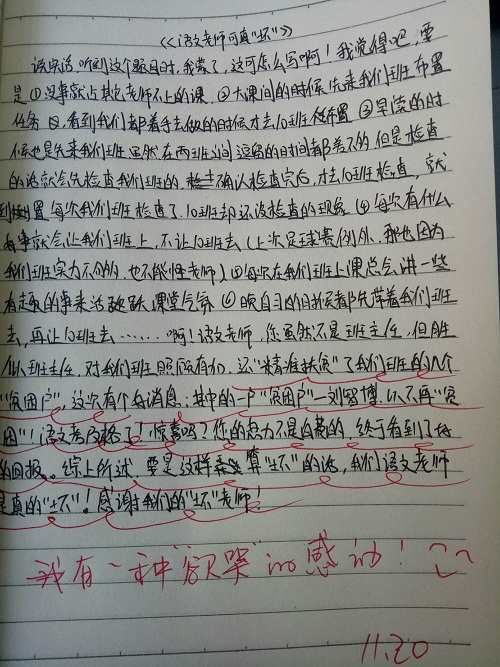 《语文老师可真"坏"》
说实话听到这个题目时，我蒙了，这可怎么写啊！我觉得吧，要
是①没事就占其它老师不上的课。②大课间的时候先来我们班布置
任务，看到我们都着手去做的时候才去10班布置 ③早读的时
候也是先来我们班虽然在两班之间逗留的时间都差不多 但是检查
的话就会先检查我们班的，确认检查完后，才去10班检查，就
到每次我们班检查了10班却还没检查的现象 ④每次有什么
事就会让我们班上，不让10班去（上次足球赛例外，那也因为
我们班实力不够，也不能怪老师）⑤每次在我们班上课总会讲一些
有趣的事来活跃课堂气氛 ⑥晚自习的时候都先带着我们班
去，再让10班去……啊！语文老师，您虽然不是班主任，但胜
似班主任，对我们班照顾有加，还"精准扶贫"了我们班的几个
"贫困户"，这次有个好消息：其中的一户"贫困户"—刘智博，不再"贫
困"！语文考及格了！惊喜吗？您的努力不是白费的，终于看到了好
的回报。综上所述，要是这样算"坏"的话，我们语文老师
是真的"坏"！感谢我们的"坏"老师！
我有一种"欲哭"的感动！
11.20